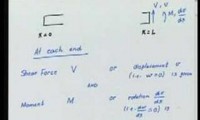 V, v
M, dv/dx
x=0
x=L
At each end
Shear Force V or displacement v
(i.e. v=0) is given
AND
Moment M or rotation dv/dx
(i.e. dv/dx = 0) is given